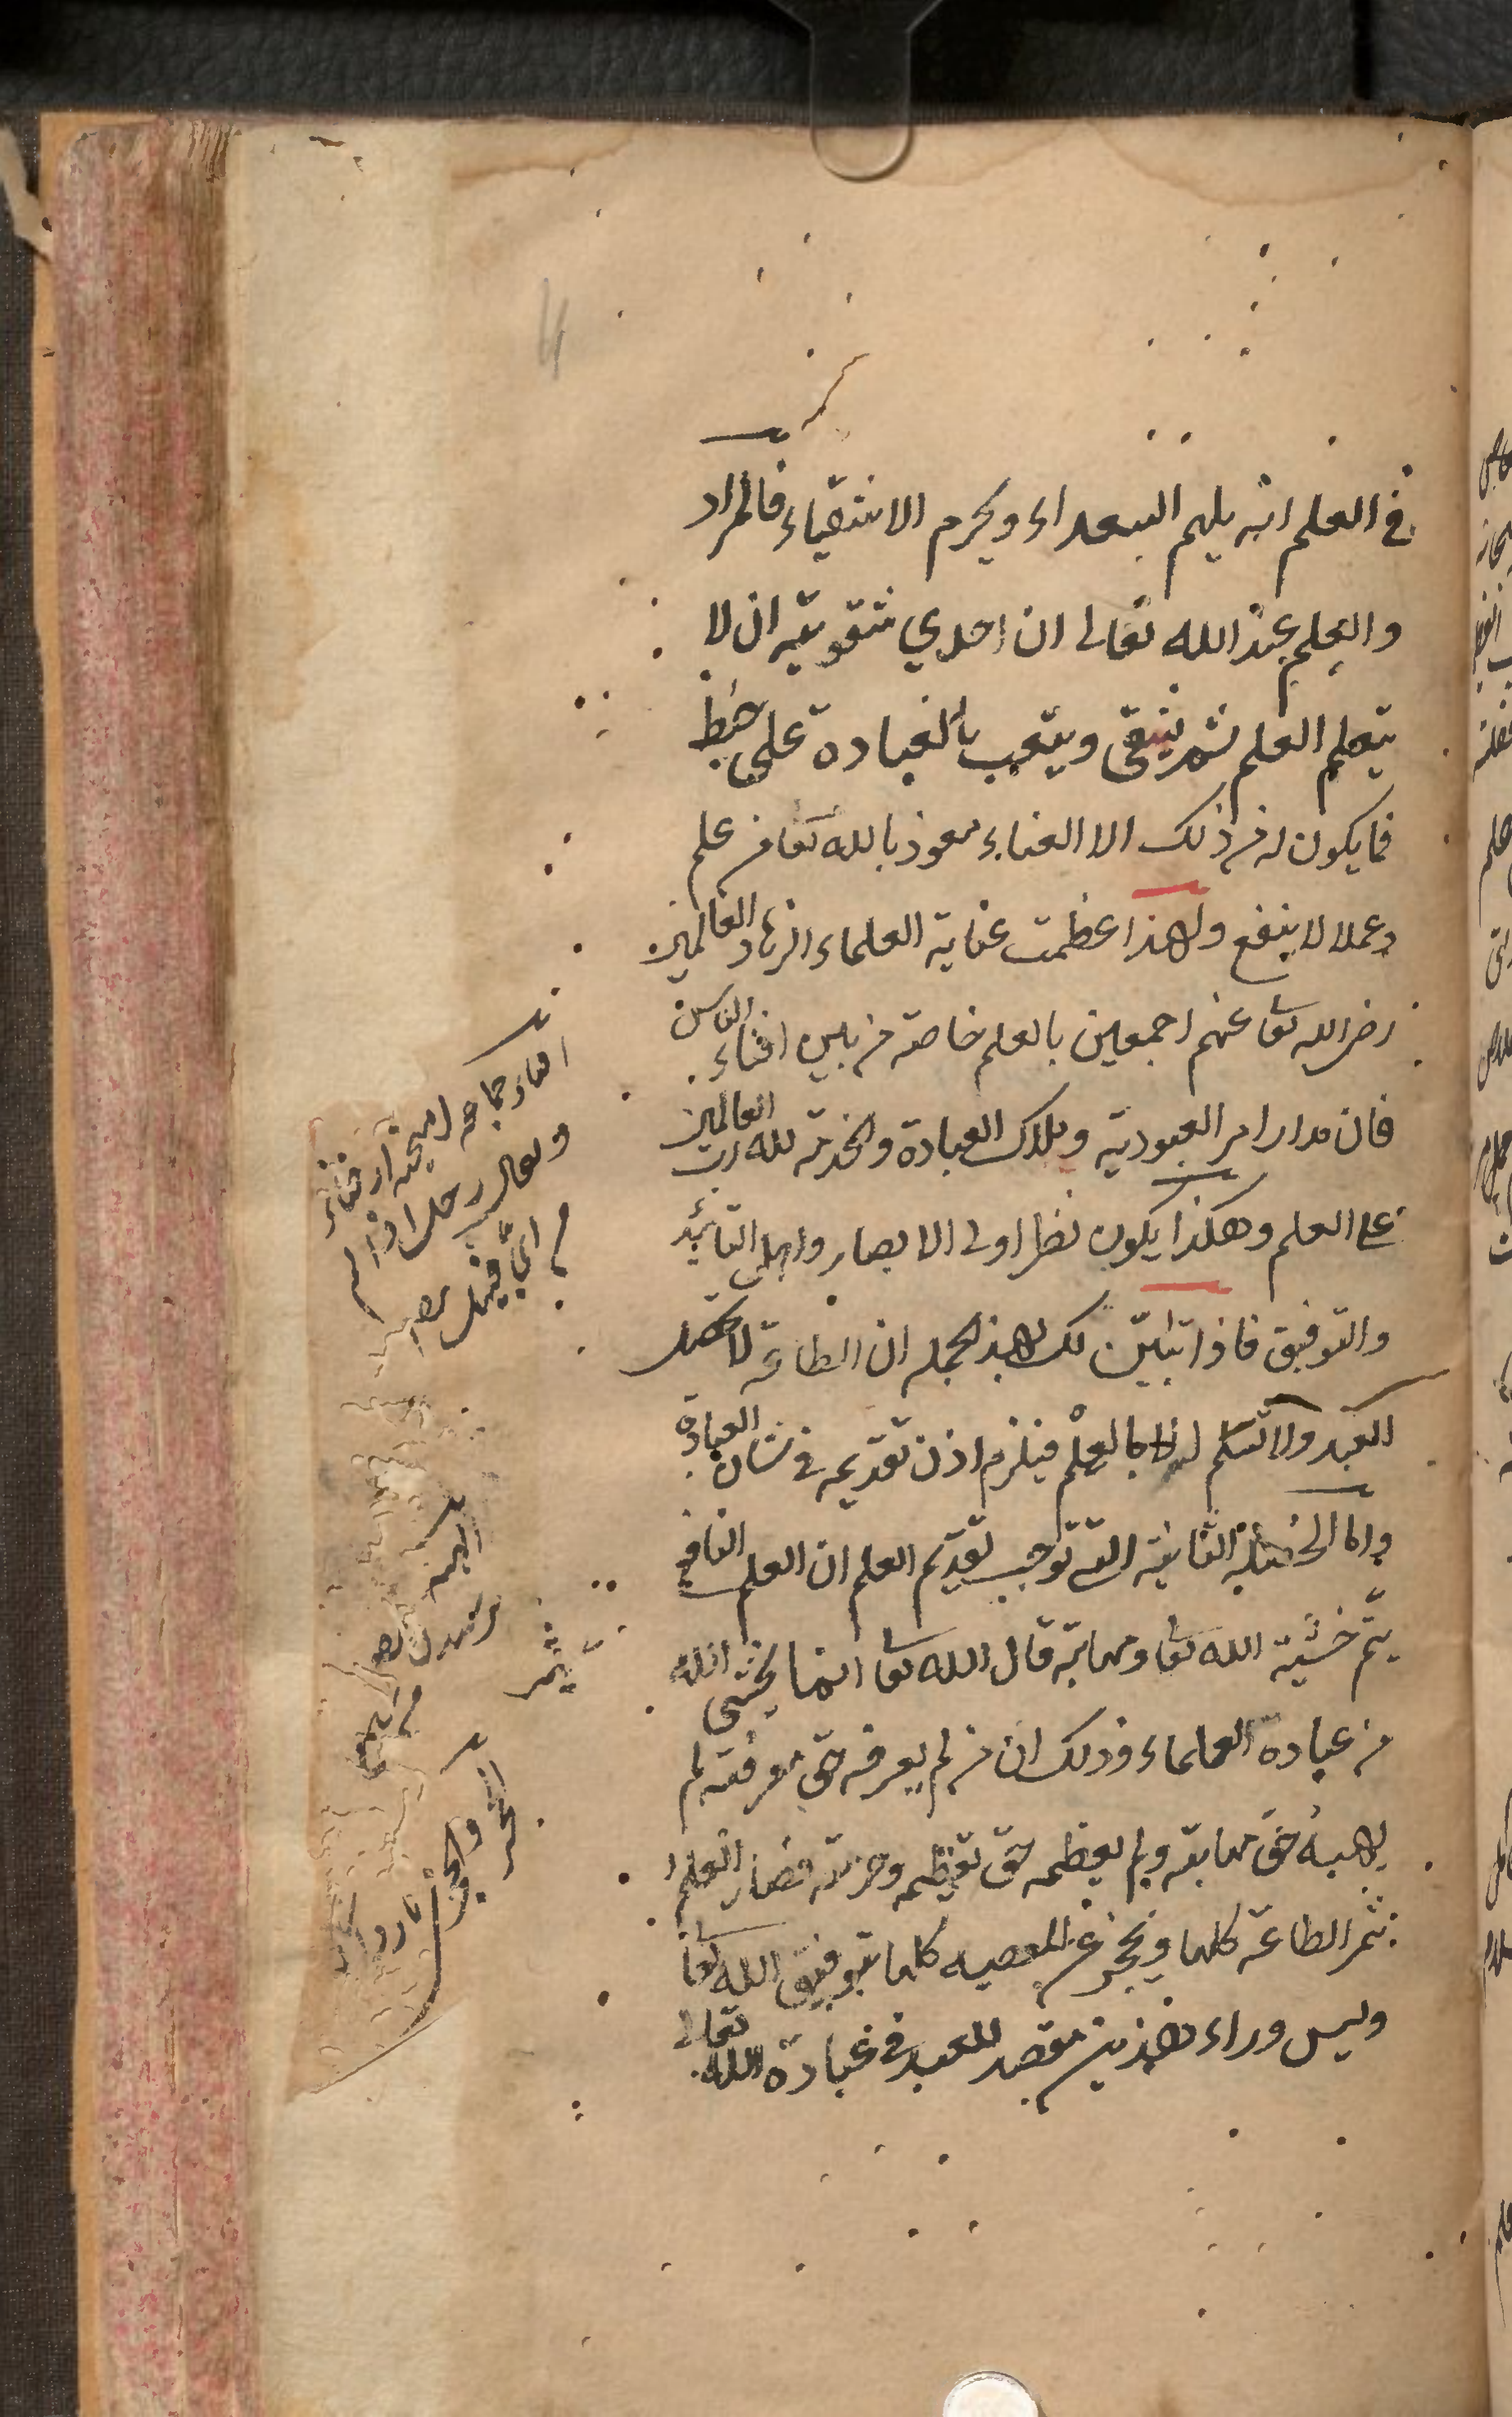 في العلم انه يلهم السعداء ويحرم الاشقياء فالمراد
والعلم عند الله تعالى ان احدي شقوتيه ان لا
يتعلم العلم ثم يبقى ويتعب بالعبادة على خبط
فما يكون له من ذلك الا العناء نعوذ بالله تعا من علم
وعمل لا ينفع ولهذا عظمت عناية العلماء الزهاد العالمين
رضي الله تعا عنهم اجمعين بالعلم خاصة من بين افناء الناس
فان مدار امر العبودية وملاك العبادة والخدمة لله رب العالمين
على العلم وهكذا يكون نظر اولى الابصار واهل التائيد
والتوفيق فاذا تبين لك بهذه الجملة ان الطاعة لا تحصل
للعبد ولا تسلم له الا بالعلم فيلزم اذن تقديمه في شان العبادة
واما الخصلة الثانية التي توجب تقديم العلم ان العلم النافع
يثمر خشية الله تعا ومهابته قال الله تعا انما يخشى الله
من عباده العلماء وذلك ان من لم يعرفه حق معرفته لم
يهبه حق مهابته ولم يعظمه حق تعظيمه وحرمته فصار العلم
يثمر الطاعة كلها ويحجز عن المعصية كلها بتوفيق الله تعا
وليس وراء هذين مقصد للعبد في عبادة الله تعالى
يثمر